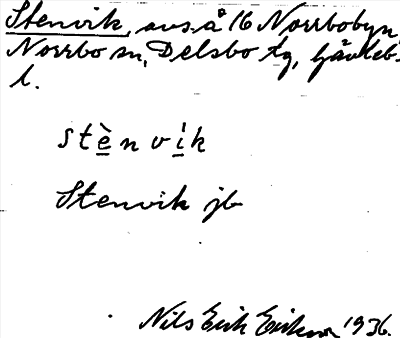 Stenvik, avs. å 16 Norrbobyn,
Norrbo sn, Delsbo tg, Gävleb.
l.
stènvík
Stenvik jb
Nils Erik Erikson 1936.